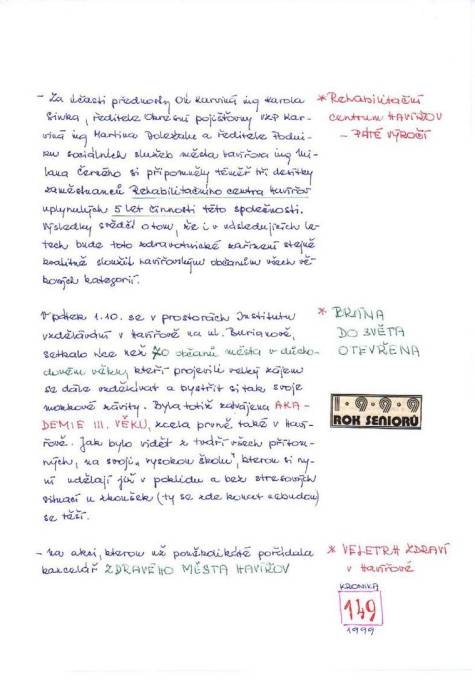 - Za účasti přednosty OÚ Karviná ing Karola
Siwka, ředitele Okresní pojišťovny VZP Kar-
viná ing Martina Doležala a ředitele Podni-
ku sociálních služeb města Havířova ing Mi-
lana Černého si připomněly téměř tři desítky
zaměstnanců Rehabilitačního centra Havířov
uplynulých 5 let činnosti této společnosti.
Výsledky svědčí o tom, že i v následujících le-
tech bude toto zdravotnické zařízení stejně
kvalitně sloužit havířovským občanům všech vě-
kových kategorií.
* Rehabilitační
centrum HAVÍŘOV
- PÁTÉ VÝROČÍ
V pátek 1.10. se v prostorách Institutu
vzdělávání v Havířově na ul. Burianově,
setkalo více než 70 občanů města v důcho-
dovém věku, kteří projevili velký zájem
se dále vzdělávat a bystřit si tak svoje
mozkové závity. Byla totiž zahájena AKA-
DEMIE III. VĚKU, zcela prvně také v Haví-
řově. Jak bylo vidět z tváří všech přítom-
ných, na svoji „vysokou školu", kterou si ny-
ní udělají již v poklidu a bez stresových
situací u zkoušek (ty se zde konat nebudou)
se těší.
* BRÁNA
DO SVĚTA
OTEVŘENA
1999
ROK SENIORŮ
- na akci, kterou už poněkolikáté pořádala
kancelář ZDRAVÉHO MĚSTA HAVÍŘOV
* VELETRH ZDRAVÍ
v Havířově
KRONIKA
149
1999